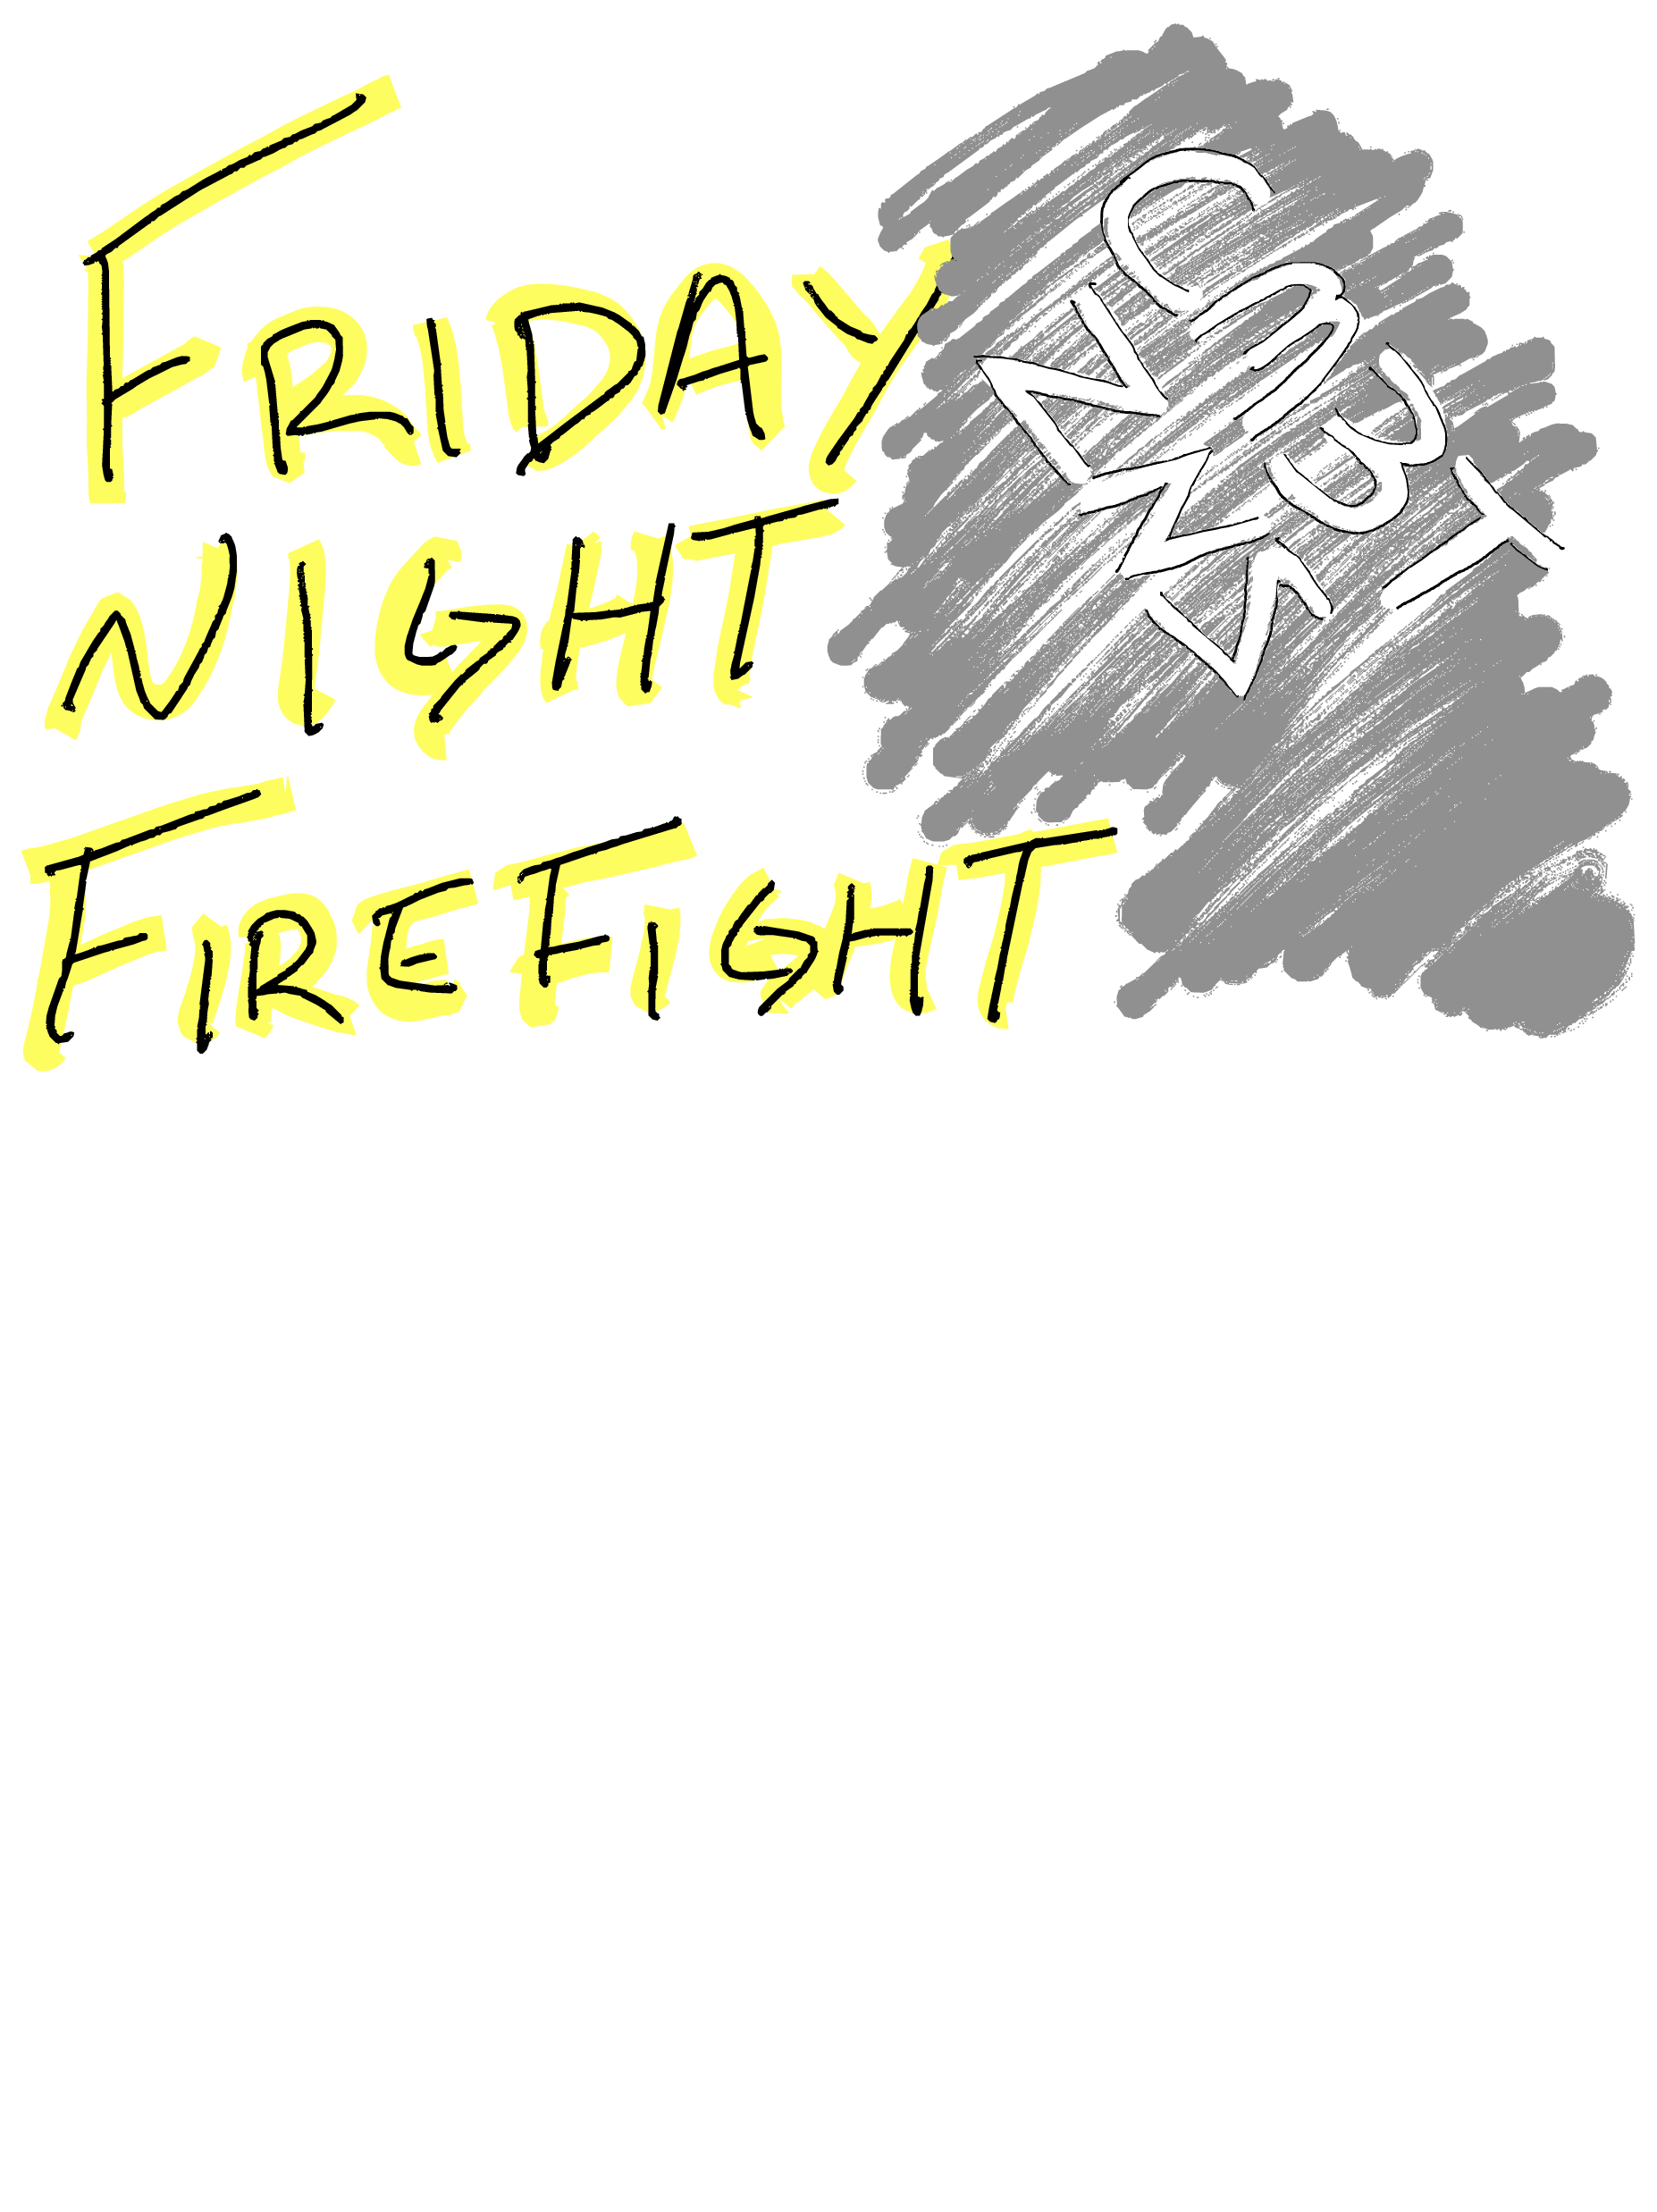 FRIDAY
NIGHT
FIREFIGHT
CMBT
ZNS